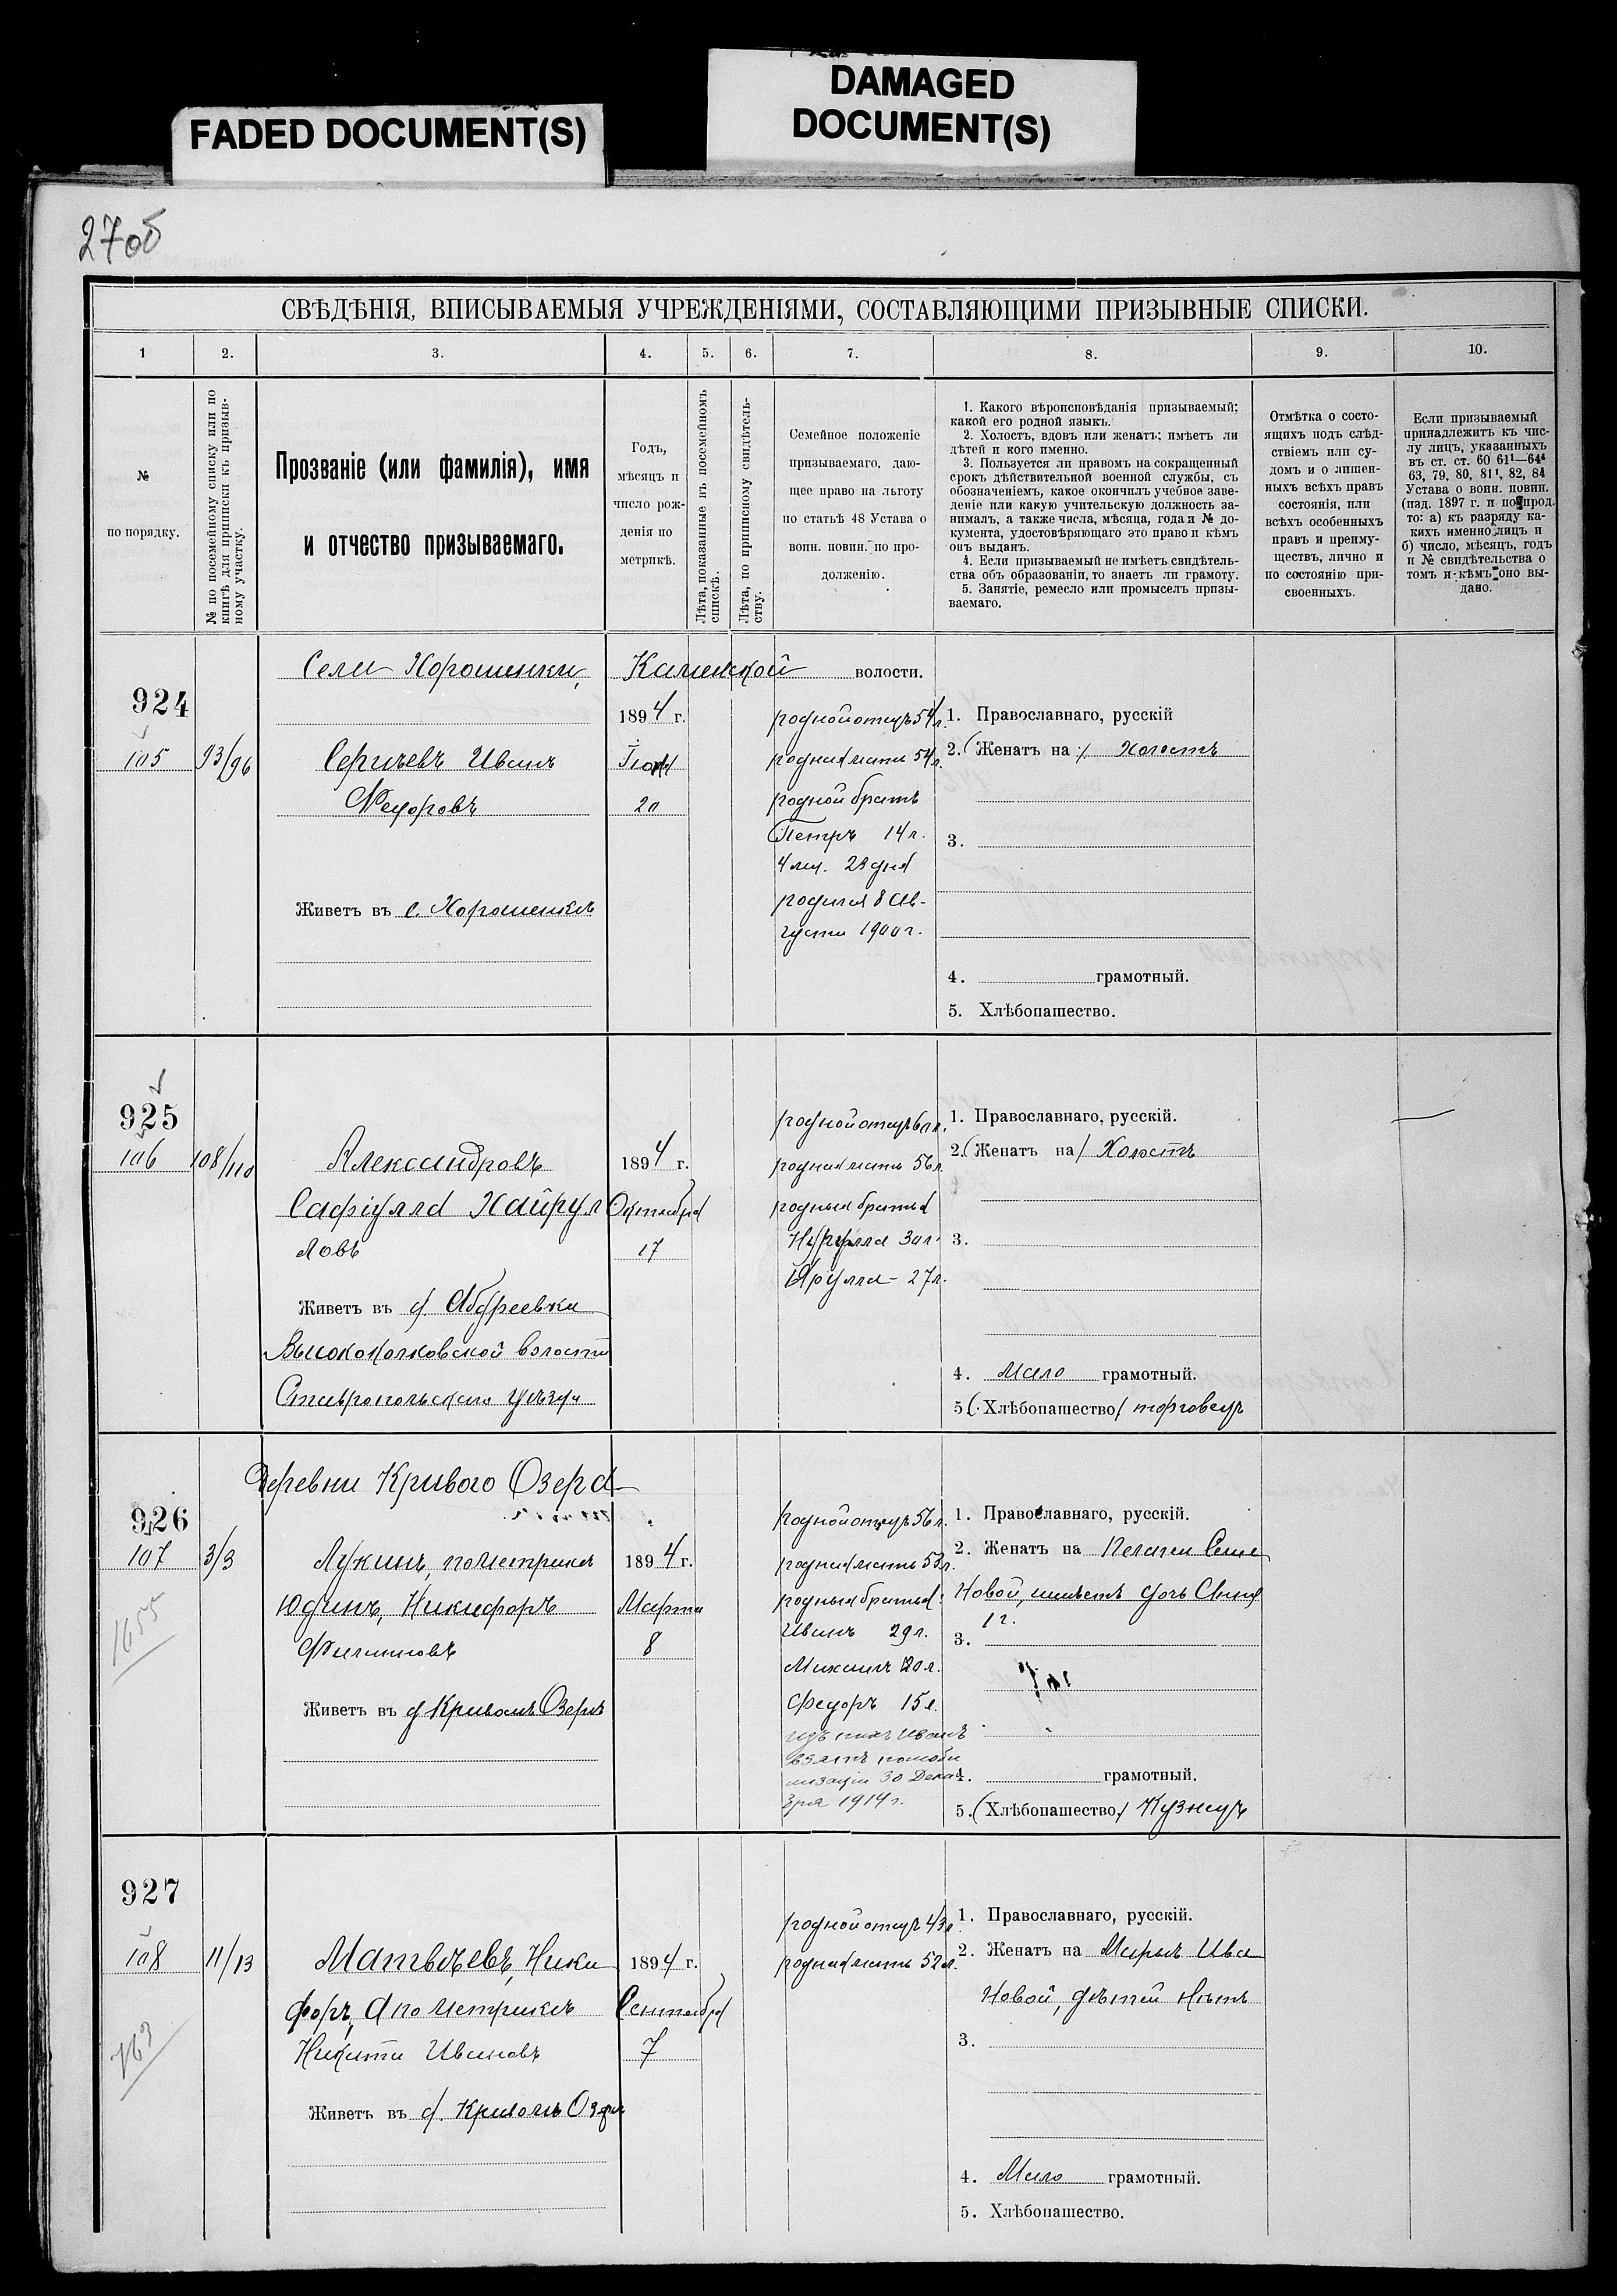 FADED DOCUMENT(S)
DAMAGED
DOCUMENT(S)
27об
СВѢДѢНІЯ, ВПИСЫВАЕМЫЯ УЧРЕЖДЕНІЯМИ, СОСТАВЛЯЮЩИМИ ПРИЗЫВНЫЕ СПИСКИ.
1
2.
3.
4.
5.
6.
7.
8.
9.
10.
№
по порядку.
№ по посемейному списку или по
книгѣ для приписки къ призыв-
ному участку.
Прозваніе (или фамилія), имя
и отчество призываемаго.
Годъ,
мѣсяцъ и
число рож-
денія по
метрикѣ.
Лѣта, показанные въ посемейномъ
спискѣ.
Лѣта, по приписному свидѣтель-
ству.
Семейное положеніе
призываемаго, даю-
щее право на льготу
по статьѣ 48 Устава о
воин. повин. по про-
долженію.
1. Какого вѣроисповѣданія призываемый;
какой его родной языкъ.
2. Холостъ, вдовъ или женатъ; имѣетъ ли
дѣтей и кого именно.
3. Пользуется ли правомъ на сокращенный
срокъ дѣйствительной военной службы, съ
обозначеніемъ, какое окончилъ учебное заве-
деніе или какую учительскую должность за-
нималъ, а также числа, мѣсяца, года и № до-
кумента, удостовѣряющаго это право и кѣмъ
онъ выданъ.
4. Если призываемый не имѣетъ свидѣтель-
ства объ образованіи, то знаетъ ли грамоту.
5. Занятіе, ремесло или промыселъ призы-
ваемаго.
Отмѣтка о состо-
ящихъ подъ слѣд-
ствіемъ или су-
домъ и о лишен-
ныхъ всѣхъ правъ
состоянія, или
всѣхъ особенныхъ
правъ и преиму-
ществъ, лично и
по состоянію при-
своенныхъ.
Если призываемый
принадлежитъ къ чис-
лу лицъ, указанныхъ
въ ст. ст. 60 61¹—64⁴
63, 79, 80, 81¹, 82, 84
Устава о воин. повин.
(изд. 1897 г. и по прод.
то: а) къ разряду ка-
кихъ именно лицъ и
б) число, мѣсяцъ, годъ
и № свидѣтельства о
томъ и кѣмъ оно вы-
дано.
Села Хорошенки, Калинской волости.
924
105
93/96
Сергѣевъ Иванъ
Ѳедоровъ
Живетъ въ с. Хорошенкѣ
1894 г.
Іюля
20
родной отецъ 54 л.
родная мать 54 л.
родной братъ
Петръ 14 л.
4 мц. 23 дня
родился 8 Ав-
густа 1900 г.
1. Православнаго, русскій
2. (Женатъ на) Холостъ
3.
4. грамотный.
5. Хлѣбопашество.
925
106
108/110
Александровъ
Сафіулла Хайрул
ловъ
Живетъ въ д. Абдреевки
Высококолковской волости
Ставропольскаго уѣзда
1894 г.
Октября
17
родной отецъ 60 л.
родная мать 56 л.
родныя братья
30 л.
Ярулла - 27 л.
1. Православнаго, русскій.
2. (Женатъ на) Холостъ
3.
4. Мало грамотный.
5. (Хлѣбопашество) торговецъ
Деревни Кривого Озера
926
107
3/3
1655
Лукинъ, по метрикѣ
Юдинъ, Никифоръ
Филипповъ
Живетъ въ д. Кривомъ Озерѣ
1894 г.
Марта
8
родной отецъ 56 л.
родная мать 53 л.
родныя братья:
Иванъ 29 л.
Михаилъ 20 л.
Федоръ 15 л.
изъ нихъ Иванъ
взятъ по моби
лизаціи 30 Декаб
бря 1914 г.
1. Православнаго, русскій.
2. Женатъ на Пелагеи Семе
новой, имѣетъ дочь Анну
1 г.
3.
4. грамотный.
5. (Хлѣбопашество) Кузнецъ
927
108
11/13
763
Матвѣевъ, Ники
форъ, а по метрикѣ
Никита Ивановъ
Живетъ въ д. Кривомъ Озерѣ
1894 г.
Сентября
7
родной отецъ 43 л.
родная мать 52 л.
1. Православнаго, русскій.
2. Женатъ на Марьѣ Ива
новой, дѣтей нѣтъ
3.
4. Мало грамотный.
5. Хлѣбопашество.